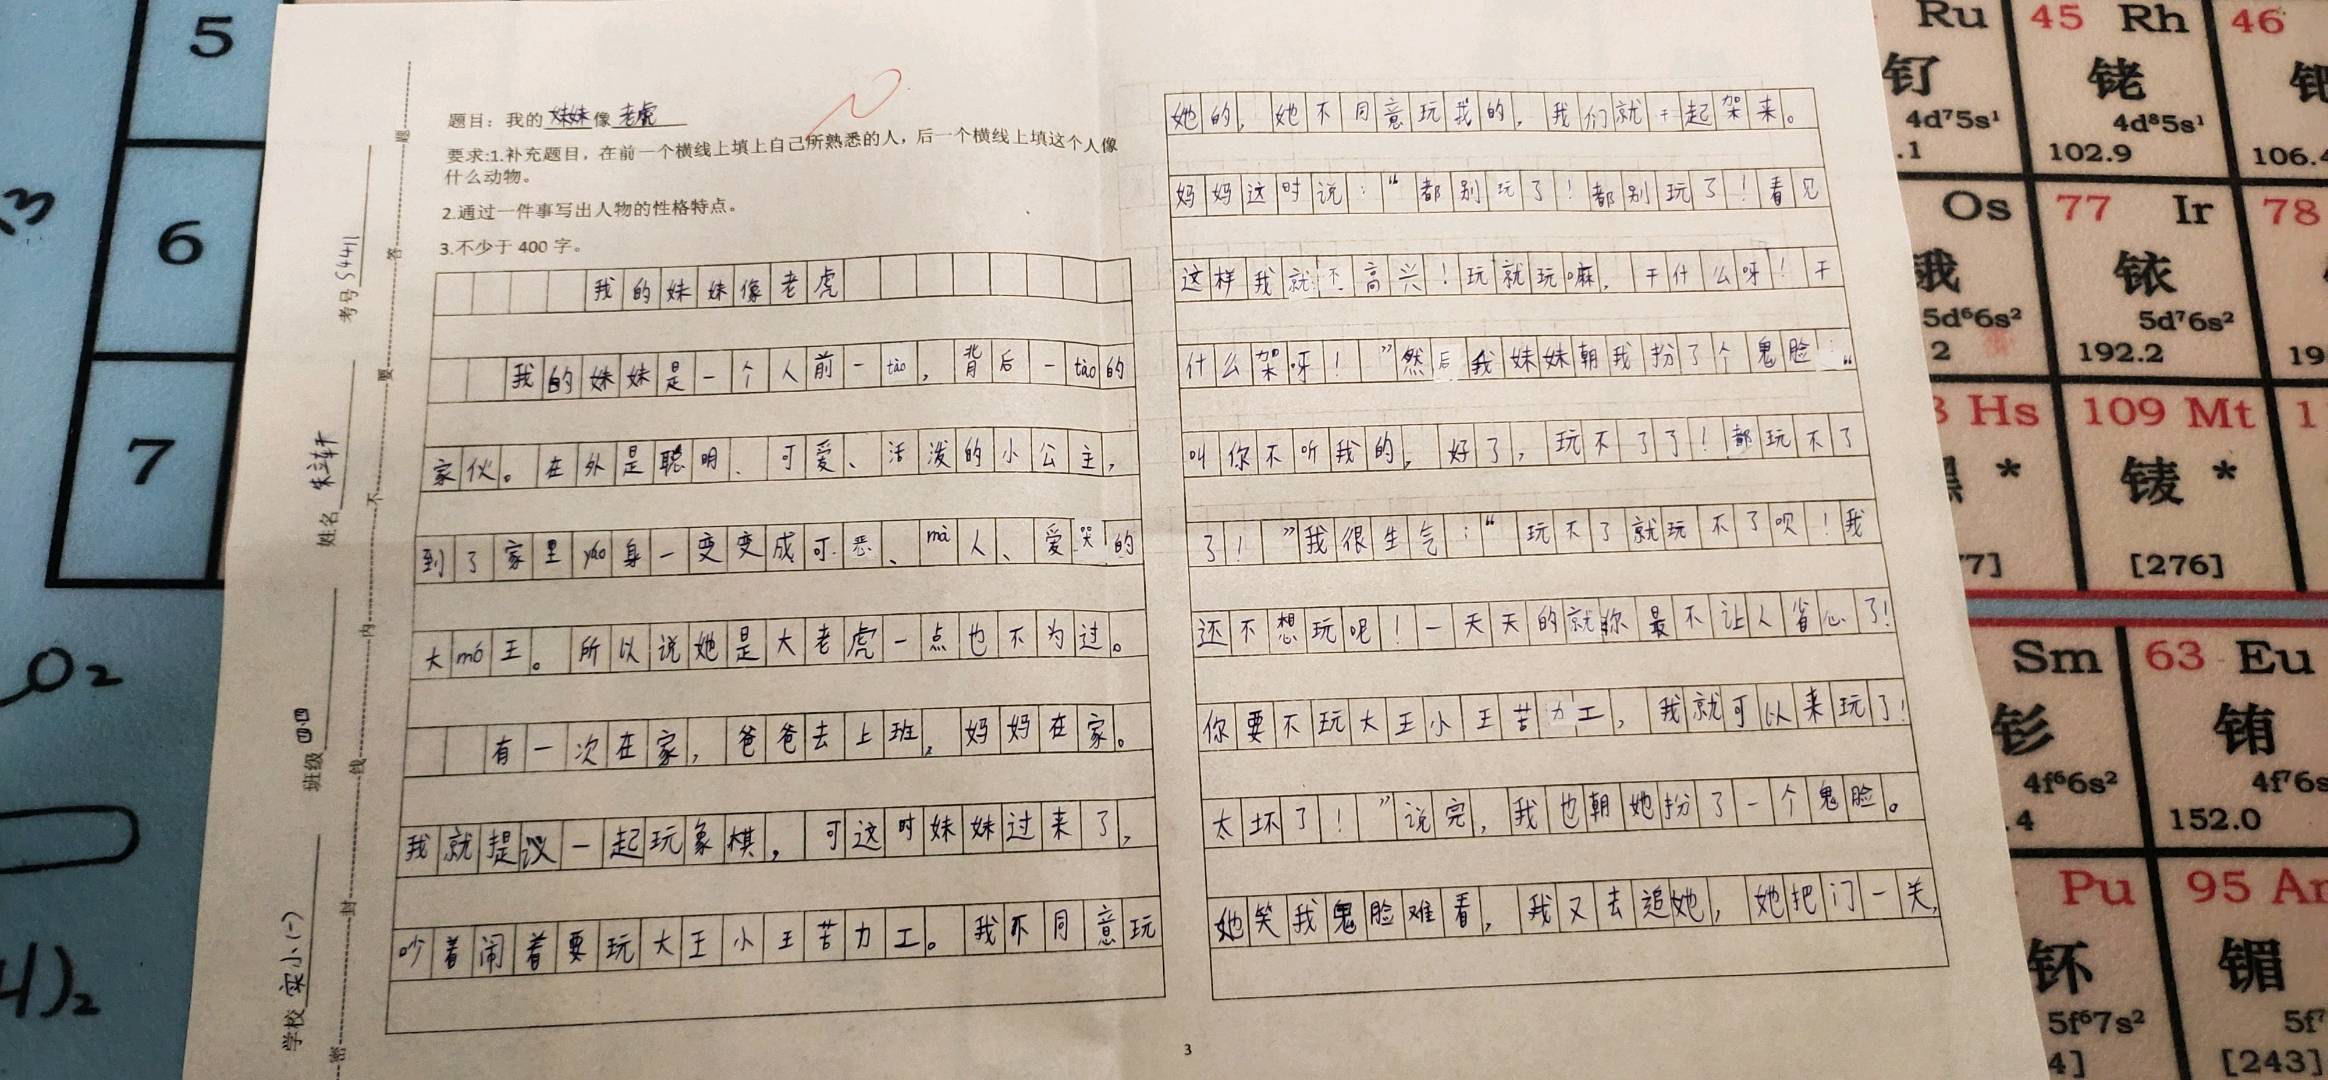 题目：我的妹妹像老虎
要求:1.补充题目，在前一个横线上填上自己所熟悉的人，后一个横线上填这个人像
什么动物。
2.通过一件事写出人物的性格特点。
3.不少于 400 字。
我的妹妹像老虎
我的妹妹是一个人前一tào，背后一tào的
家伙。在外是聪明、可爱、活泼的小公主，
到了家里yáo身一变变成可恶、mà人、爱哭的
大mó王。所以说她是大老虎一点也不为过。
有一次在家，爸爸去上班，妈妈在家。
我就提议一起玩象棋，可这时妹妹过来了，
吵着闹着要玩大王小王苦力工。我不同意玩
她的，她不同意玩我的，我们就干起架来。
妈妈这时说：“都别玩了！都别玩了！看见
这样我就不高兴！玩就玩嘛，干什么呀！干
什么架呀！”然后我妹妹朝我扮了个鬼脸：“
叫你不听我的，好了，玩不了了！都玩不了
了！”我很生气：“玩不了就玩不了呗！我
还不想玩呢！一天天的就你最不让人省心了！
你要不玩大王小王苦力工，我就可以来玩了！
太坏了！”说完，我也朝她扮了一个鬼脸。
她笑我鬼脸难看，我又去追她，她把门一关，
3
学校 实小(一)
班级 四四
姓名
考号 S4411
密 封 线 内 不 要 答 题
5
6
7
O2
4)2
Ru
45 Rh
46
钌
铑
钯
4d⁷5s¹
4d⁸5s¹
.1
102.9
106.4
Os
77 Ir
78
锇
铱
5d⁶6s²
5d⁷6s²
2
192.2
19
Hs
109 Mt
1
𨭆 *
鿏 *
77]
[276]
Sm
63 Eu
钐
铕
4f⁶6s²
4f⁷6s
.4
152.0
Pu
95 Am
钚
镅
5f⁶7s²
5f⁷
4]
[243]